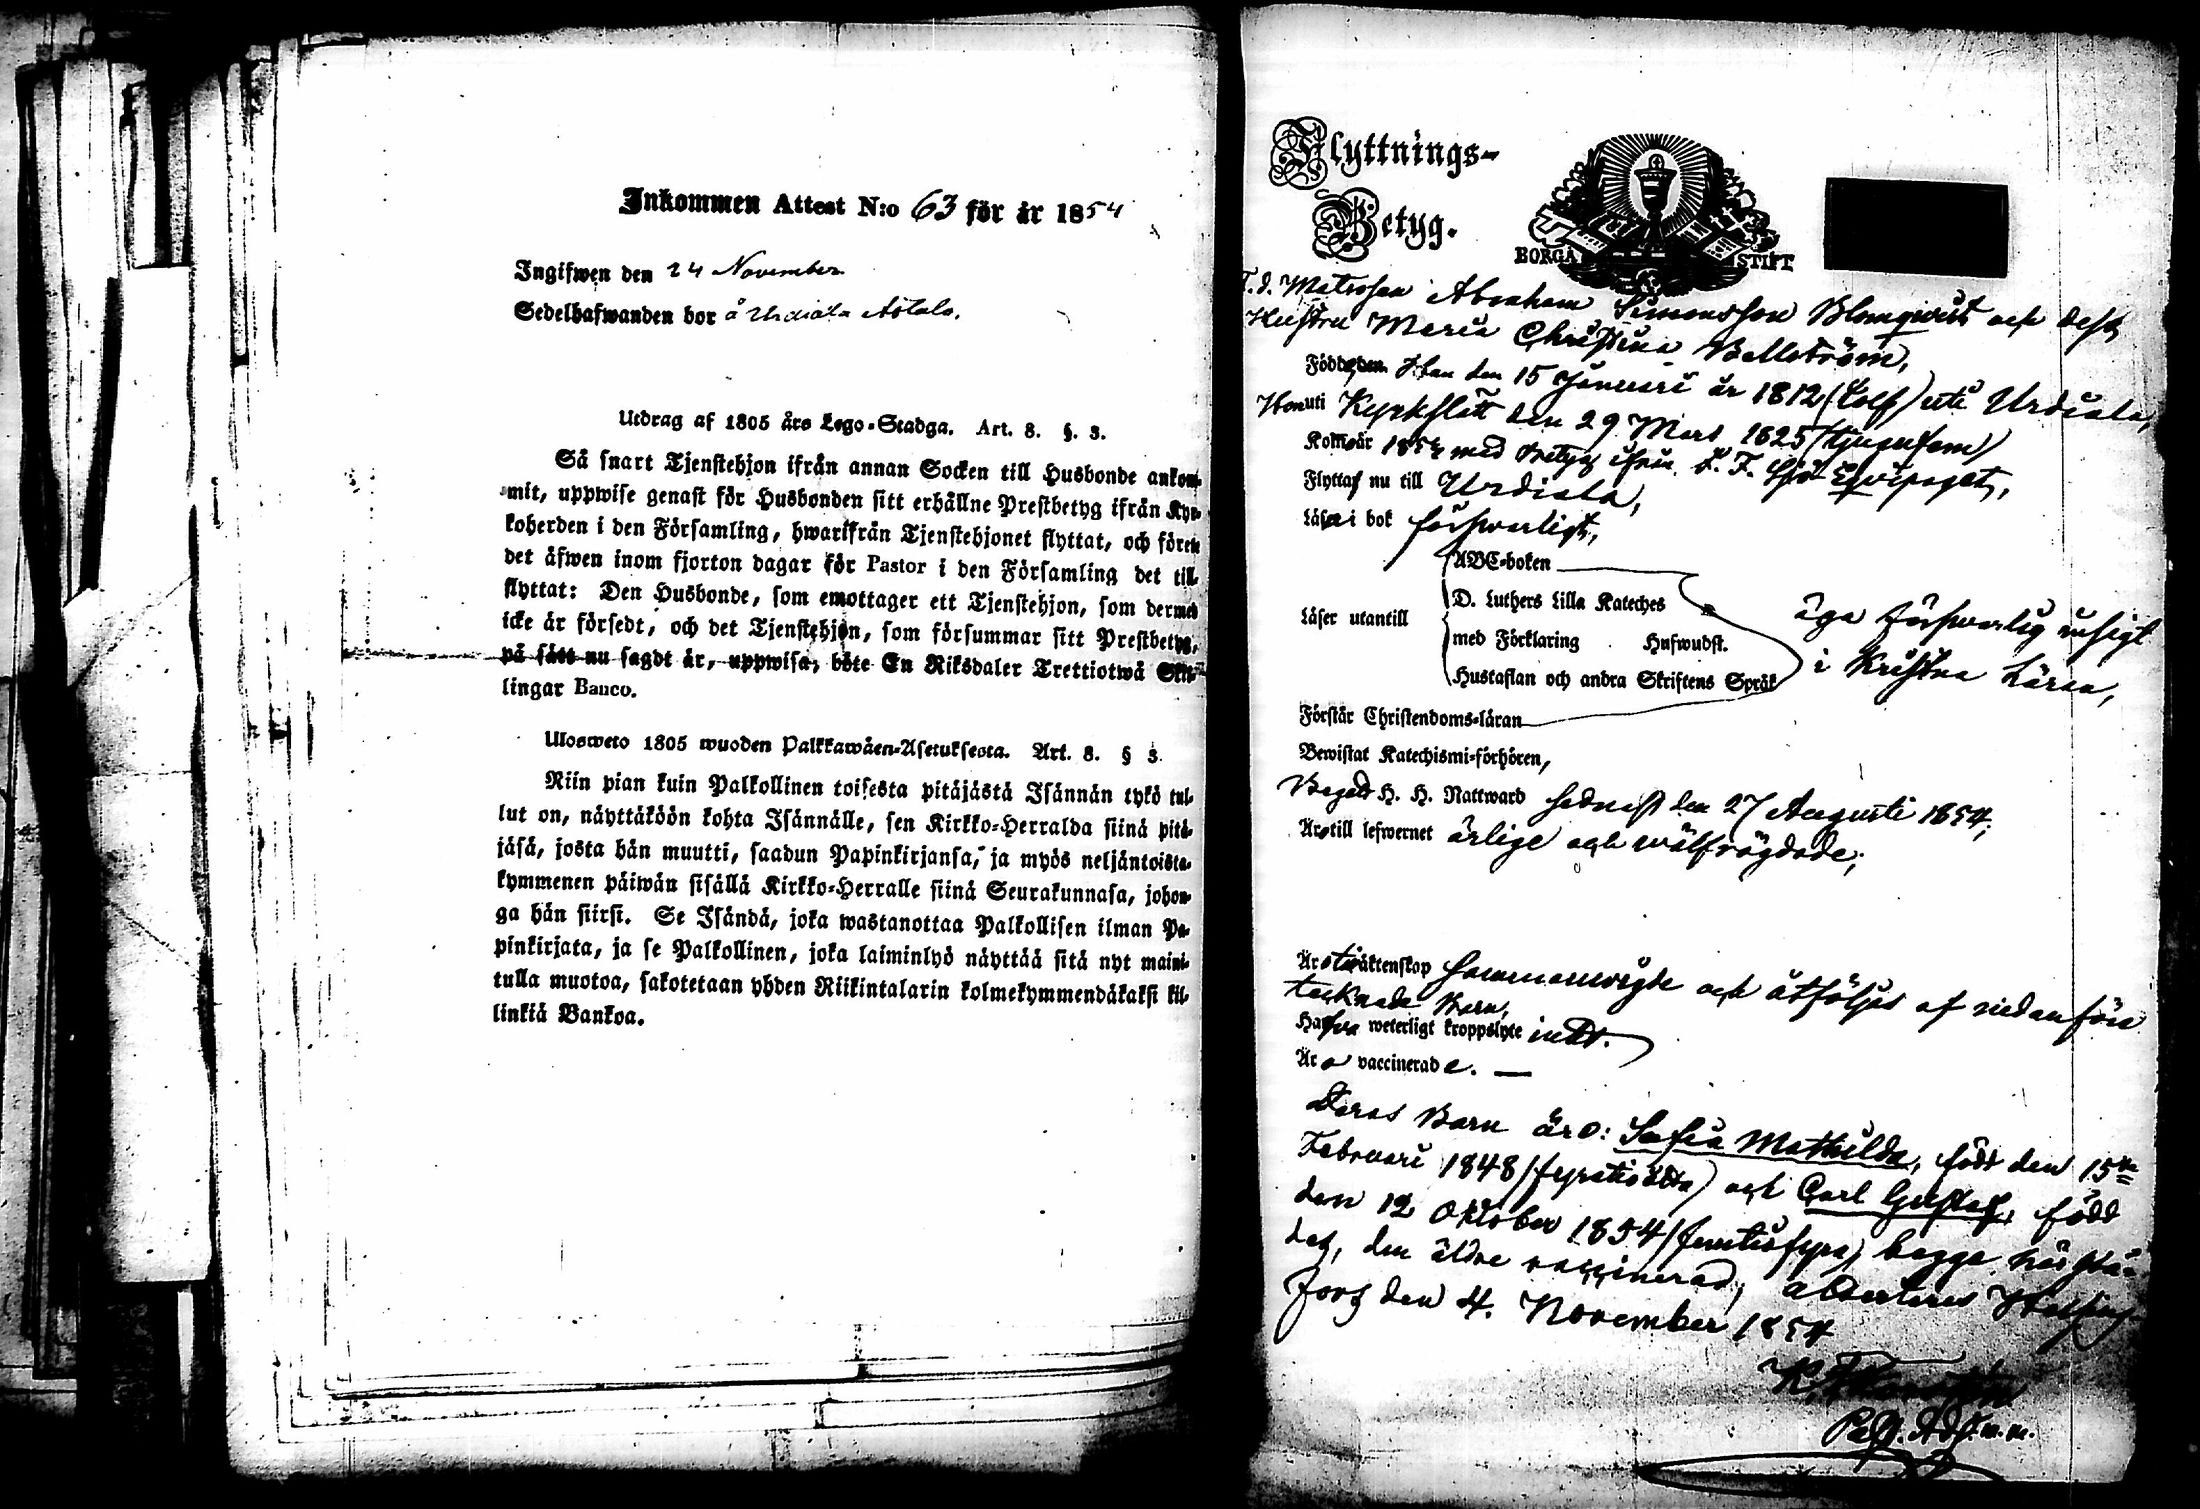 Inkommen Attest N:o 63 för år 1854
Ingifwen den 24 November
Sedelhafwanden bor å Urdiala
Utdrag af 1805 års Lego-Stadga. Art. 8. §. 3.
Så snart Tjenstehjon ifrån annan Socken till Husbonde ankom-
mit, uppwise genast för Husbonden sitt erhållne Prestbetyg ifrån Kyr-
koherden i den Församling, hwarifrån Tjenstehjonet flyttat, och förete
det äfwen inom fjorton dagar för Pastor i den Församling det till-
flyttat: Den Husbonde, som emottager ett Tjenstehjon, som dermed
icke är försedt, och det Tjenstehjon, som försummar sitt Prestbetyg,
på sätt nu sagdt är, uppwisa, böte En Riksdaler Trettiotwå Skil-
lingar Banco.
Ulosweto 1805 wuoden Palkkawäen-Asetuksesta. Art. 8. § 3
Niin pian kuin Palkollinen toisesta pitäjästä Isännän tykö tul-
lut on, näyttäköön kohta Isännälle, sen Kirkko-Herralda siinä pitä-
jäsä, josta hän muutti, saadun Papinkirjansa, ja myös neljäntoista-
kymmenen päiwän sisällä Kirkko-Herralle siinä Seurakunnasa, johon-
ga hän siirsi. Se Isändä, joka wastanottaa Palkollisen ilman Pa-
pinkirjata, ja se Palkollinen, joka laiminlyö näyttää sitä nyt maini-
tulla muotoa, sakotetaan yhden Riikintalarin kolmekymmendäkaksi kil-
linkiä Bankoa.
Flyttnings-
Betyg.
BORGÅ STIFT
F. d. Matrosen Abraham Simonsson Blomqvist och dess
Hustru Maria Christina Bellström,
Födde, den Han den 15 Januari år 1812 (tolf) uti Urdiala,
Hon uti Kyrkslätt den 29 Mars 1825 (tjugufem)
Komo år 1854 med betyg ifrån K. F. Sjö Equipaget,
Flytta nu till Urdiala,
Läsa i bok försvarligt,
Läser utantill
ABC-boken
D. Luthers Lilla Kateches
med Förklaring Hufwudst.
Hustaflan och andra Skriftens Språk
äga försvarlig insigt
i Kristna Läran,
Förstår Christendoms-läran
Bewistat Katechismi-förhören,
Begått H. H. Nattward sednast den 27 Augusti 1854;
Äro till lefwernet ärlige och wälfrägdade;
Äro till äktenskap sammanvigde och åtföljas af nedanföre
tecknade Barn,
Hafwa weterligt kroppslyte intet.
Äro vaccinerade. —
Deras Barn äro: Sofia Mathilda, född den 15de
Februari 1848 (fyratioåtta) och Carl Gustaf, född
den 12 Oktober 1854 (femtiofyra) begge härstä-
des, den äldre vaccinerad, attesteras Helsing-
fors den 4. November 1854